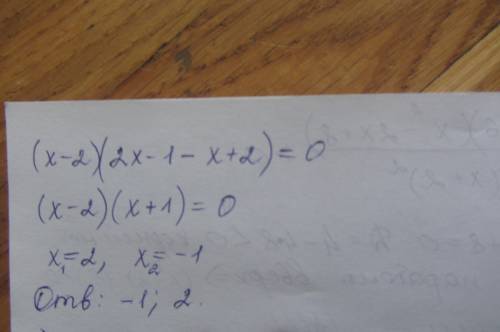 (x-2)(2x-1-x+2)=0
(x-2)(x+1)=0
x₁=2, x₂=-1
Отв: -1; 2.